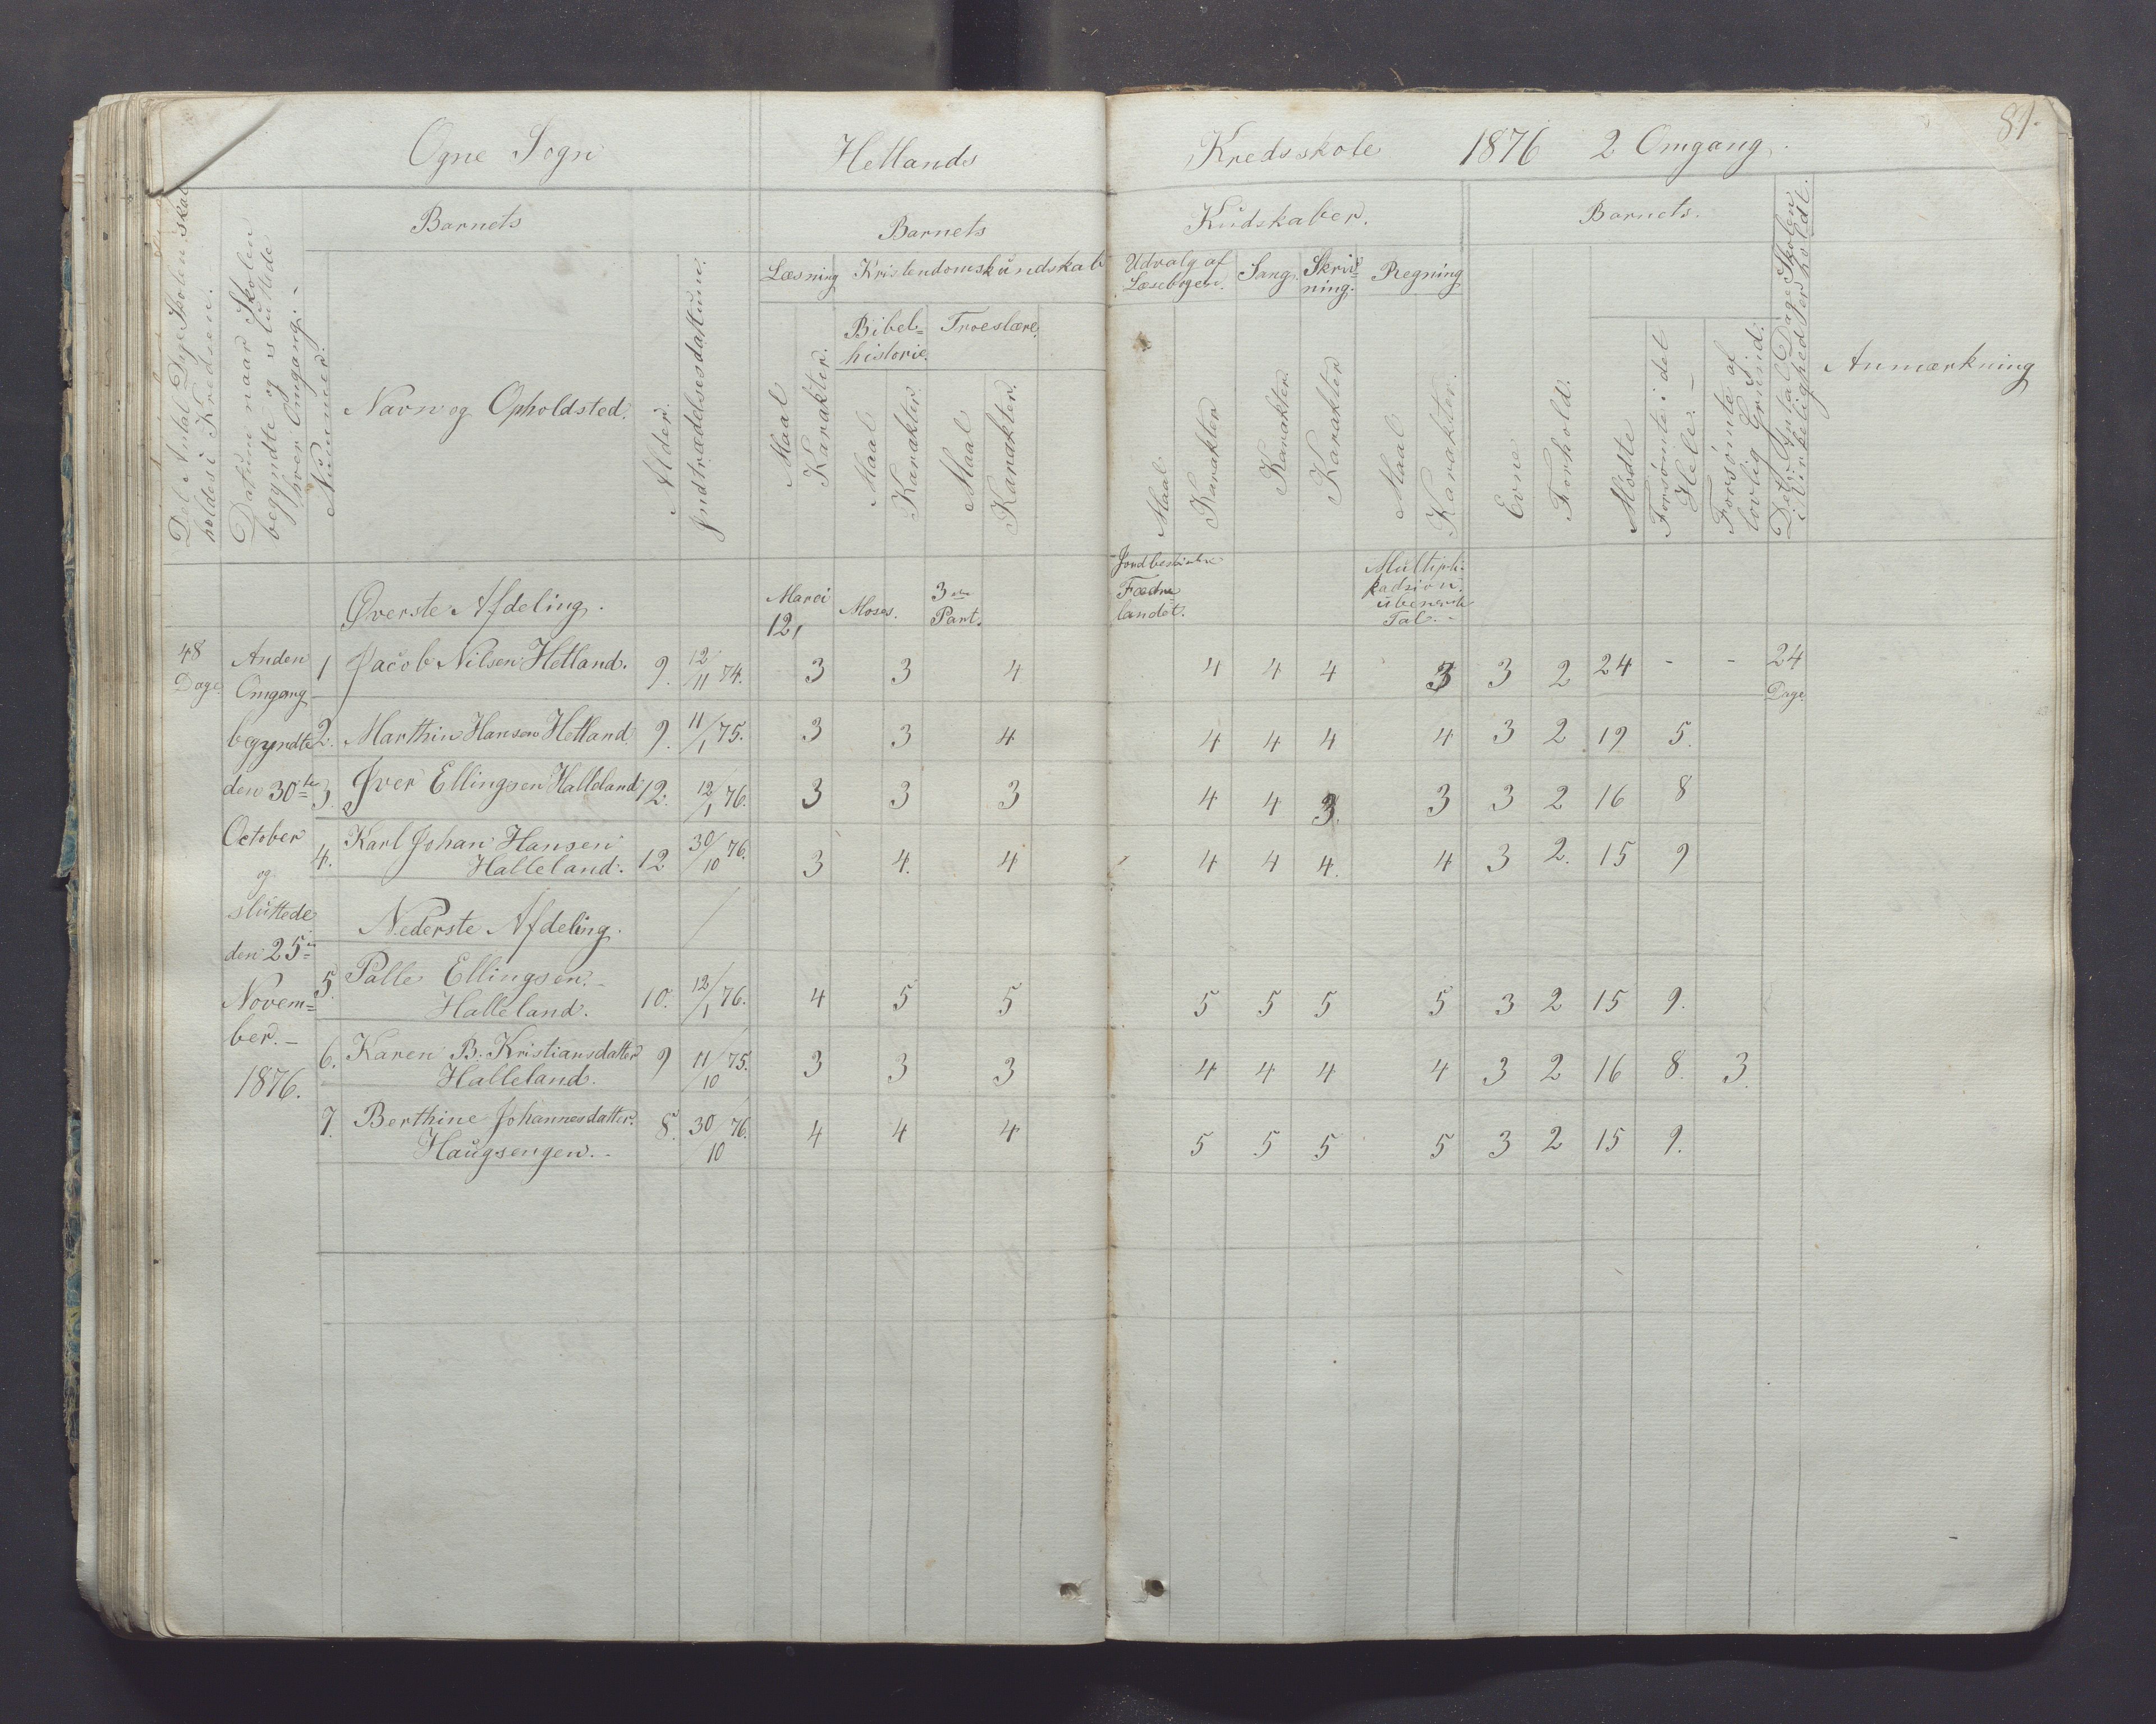 Ogne Sogn Hetlands Kredsskole 1876 2 Omgang. 81.
Det Antal Dage Skolen skal
holdes i Kredsen.
Datum naar Skolen
begyndte og sluttede
hver Omgang.
Nummer.
Barnets
Navn og Opholdsted.
Alder.
Indtrædelsesdattum.
Barnets
Læsning
Maal
Karakter.
Kristendomskundskab
Bibel=
historie.
Maal
Karakter.
Troeslære.
Maal
Karakter.
Kudskaber.
Udvalg af
Læsebogen.
Maal.
Karakter
Sang.
Karakter.
Skriv=
ning.
Karakter
Regning
Maal
Karakter.
Barnets.
Evne
Forhold.
Mødte
Forsømte i det
Hele. -
Forsømte af
lovlig Grund.
Det Antal Dage Skolen
i Virkelighed er holdt.
Anmærkning
Øverste Afdeling.
Marci
12,
Moses.
3die
Part.
Fædre
landet.
Multipli-
kadsion
Tal. -
48
Dage.
Anden
Omgang
begyndte
den 30te
October
og
sluttede
den 25de
Novem=
ber. -
1876.
1 Jacob Nilsen Hetland. 9. 12/11 74. 3 3 4 4 4 4 3 3 2 24 - - 24
Dage
2. Marthin Hansen Hetland 9. 11/1 75. 3 3 4 4 4 4 4 3 2 19 5.
3. Iver Ellingsen Halleland 12. 12/1 76. 3 3 3 4 4 3. 3 3 2 16 8
4. Karl Johan Hansen
Halleland. 12 30/10 76. 3 4. 4 4 4 4. 4 3 2. 15 9
Nederste Afdeling.
5. Palle Ellingsen. -
Halleland. 10. 12/1 76. 4 5 5 5 5 5 5 3 2 15 9.
6. Karen B. Kristiansdatter
Halleland. 9 11/10 75. 3 3 3 4 4 4 4 3 2 16 8. 3.
7. Berthine Johannesdatter.
Haugsengen. - 8. 30/10 76. 4 4 4 5 5 5 5 3 2 15 9.